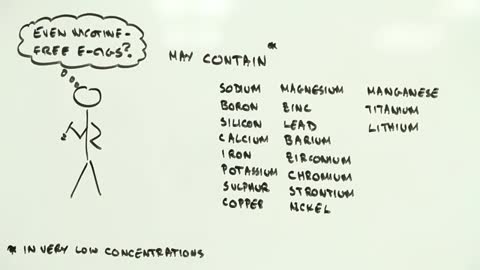 EVEN NICOTINE-
FREE E-CIGS?
MAY CONTAIN*
SODIUM MAGNESIUM MANGANESE
BORON ZINC TITANIUM
SILICON LEAD LITHIUM
CALCIUM BARIUM
IRON ZIRCONIUM
POTASSIUM CHROMIUM
SULPHUR STRONTIUM
COPPER NICKEL
* IN VERY LOW CONCENTRATIONS